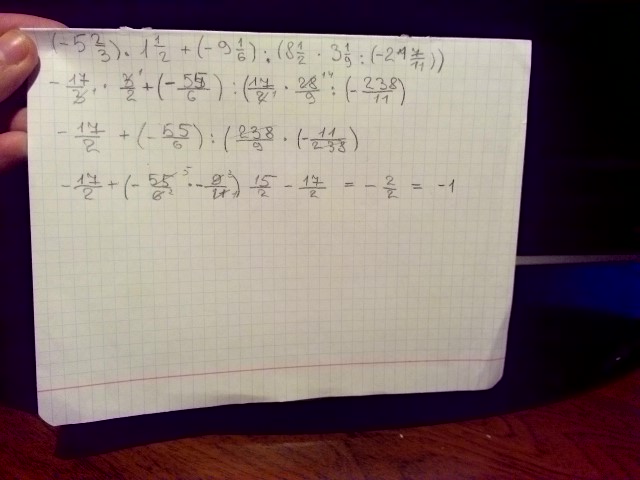 (-5 2/3) · 1 1/2 + (-9 1/6) : (8 1/2 · 3 1/9 : (-24 7/11))
- 17/3 · 3/2 + (- 55/6) : (17/2 · 28/9 : (- 238/11)
- 17/2 + (- 55/6) : (238/9 · (- 11/238)
- 17/2 + (- 55/6 · - 9/11) 15/2 - 17/2 = - 2/2 = -1